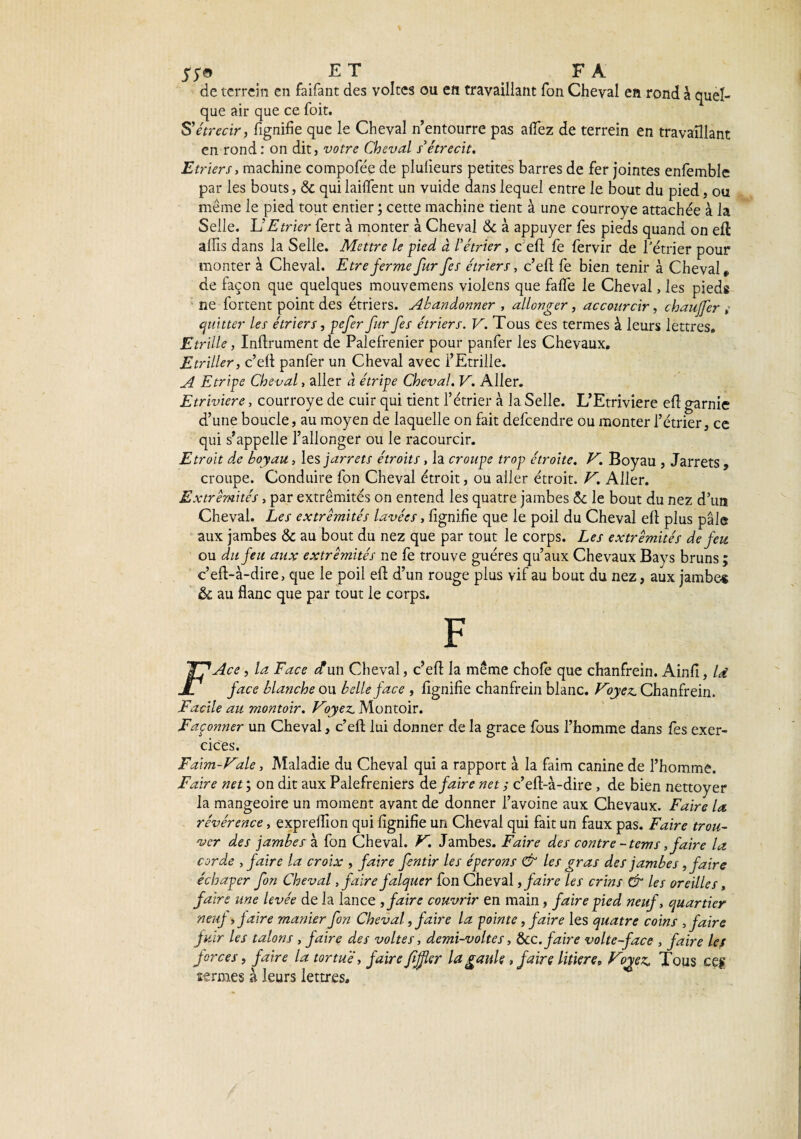 550 ET FA
de terrein en faiſant des voltes ou en travaillant ſon Cheval en rond à quel-
que air que ce ſoit.
S'étrecir, ſignifie que le Cheval n'entourre pas aſſez de terrein en travaillant
en rond : on dit, votre Cheval s'étrecit.
Etriers, machine compoſée de pluſieurs petites barres de fer jointes enſemble
par les bouts, & qui laiſſent un vuide dans lequel entre le bout du pied, ou
même le pied tout entier ; cette machine tient à une courroye attachée à la
Selle. L'Etrier ſert à monter à Cheval & à appuyer ſes pieds quand on eſt
aſſis dans la Selle. Mettre le pied à l'étrier, c'eſt ſe ſervir de l'étrier pour
monter à Cheval. Etre ferme ſur ſes étriers, c'eſt ſe bien tenir à Cheval,
de façon que quelques mouvemens violens que faſſe le Cheval, les pieds
ne ſortent point des étriers. Abandonner, allonger, accourcir, chauſſer,
quitter les étriers, peſer ſur ſes étriers. V. Tous ces termes à leurs lettres.
Etrille, Inſtrument de Palefrenier pour panſer les Chevaux.
Etriller, c'eſt panſer un Cheval avec l'Etrille.
A Etripe Cheval, aller à étripe Cheval. V. Aller.
Etriviere, courroye de cuir qui tient l'étrier à la Selle. L'Etriviere eſt garnie
d'une boucle, au moyen de laquelle on fait deſcendre ou monter l'étrier, ce
qui s'appelle l'allonger ou le racourcir.
Etroit de boyau, les jarrets étroits, la croupe trop étroite. V. Boyau, Jarrets,
croupe. Conduire ſon Cheval étroit, ou aller étroit. V. Aller.
Extrêmités, par extrêmités on entend les quatre jambes & le bout du nez d'un
Cheval. Les extrêmités lavées, ſignifie que le poil du Cheval eſt plus pâle
aux jambes & au bout du nez que par tout le corps. Les extrêmités de feu
ou du feu aux extrêmités ne ſe trouve guéres qu'aux Chevaux Bays bruns ;
c'eſt-à-dire, que le poil eſt d'un rouge plus vif au bout du nez, aux jambes
& au flanc que par tout le corps.
F
FAce, la Face d'un Cheval, c'eſt la même choſe que chanfrein. Ainſi, la
face blanche ou belle face, ſignifie chanfrein blanc. Voyez Chanfrein.
Facile au montoir. Voyez Montoir.
Façonner un Cheval, c'eſt lui donner de la grace ſous l'homme dans ſes exer-
cices.
Faim-Vale, Maladie du Cheval qui a rapport à la faim canine de l'homme.
Faire net ; on dit aux Palefreniers de faire net ; c'eſt-à-dire, de bien nettoyer
la mangeoire un moment avant de donner l'avoine aux Chevaux. Faire la
révérence, expreſſion qui ſignifie un Cheval qui fait un faux pas. Faire trou-
ver des jambes à ſon Cheval. V. Jambes. Faire des contre-tems, faire la
corde, faire la croix, faire ſentir les éperons & les gras des jambes, faire
échaper ſon Cheval, faire falquer ſon Cheval, faire les crins & les oreilles,
faire une levée de la lance, faire couvrir en main, faire pied neuf, quartier
neuf, faire manier ſon Cheval, faire la pointe, faire les quatre coins, faire
fuir les talons, faire des voltes, demi-voltes, &c. faire volte-face, faire les
forces, faire la tortuë, faire ſiffler la gaule, faire litiere. Voyez Tous ces
termes à leurs lettres.